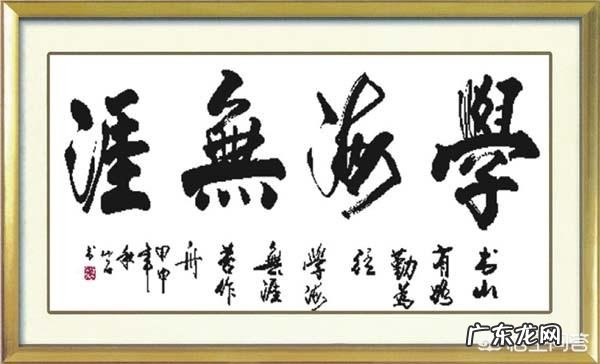 學海無涯
书山
有路
勤為
徑
學海
無涯
苦作
舟
甲申
年
秋
书
广东龙网